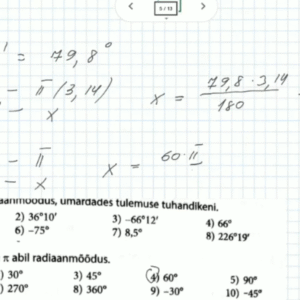 5 / 13
' = 79,8°
– π (3,14)
– x
x = 79,8 · 3,14 / 180
– π
– x
x = 60 · π
aanmõõdus, umardades tulemuse tuhandikeni.
2) 36°10′ 3) –66°12′ 4) 66°
6) –75° 7) 8,5° 8) 226°19′
π abil radiaanmõõdus.
) 30° 3) 45° 4) 60° 5) 90°
) 270° 8) 360° 9) –30° 10) –45°